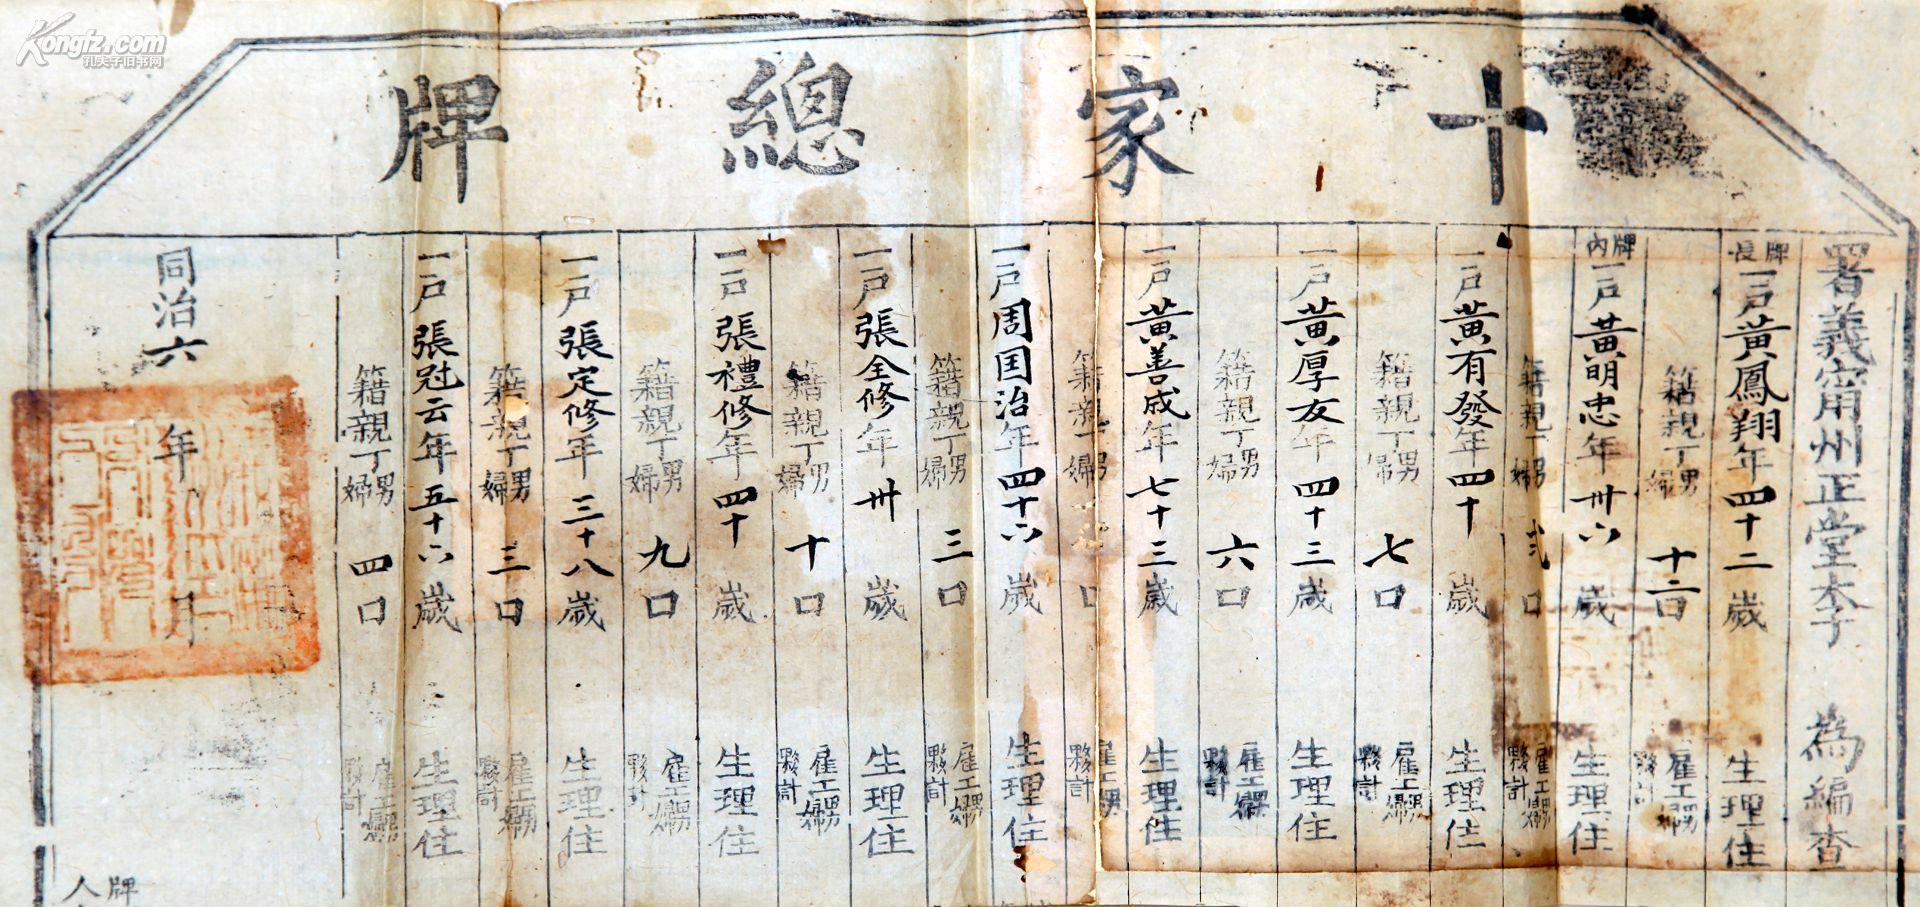 Kongfz.com
孔夫子旧书网
十家總牌
署義寧州正堂李 為編查
牌長 一戶黃鳳翔年四十二歲 生理住
籍親丁男婦十二口 雇工男婦夥計
牌內 一戶黃明忠年卅六歲 生理住
籍親丁男婦弍口 雇工男婦夥計
一戶黃有發年四十歲 生理住
籍親丁男婦七口 雇工男婦夥計
一戶黃厚友年四十三歲 生理住
籍親丁男婦六口 雇工男婦夥計
一戶黃善成年七十三歲 生理住
籍親丁男婦口 雇工男婦夥計
一戶周国治年四十六歲 生理住
籍親丁男婦三口 雇工男婦夥計
一戶張全修年卅歲 生理住
籍親丁男婦十口 雇工男婦夥計
一戶張禮修年四十歲 生理住
籍親丁男婦九口 雇工男婦夥計
一戶張定修年三十八歲 生理住
籍親丁男婦三口 雇工男婦夥計
一戶張冠云年五十六歲 生理住
籍親丁男婦四口 雇工男婦夥計
同治六年 月
牌人